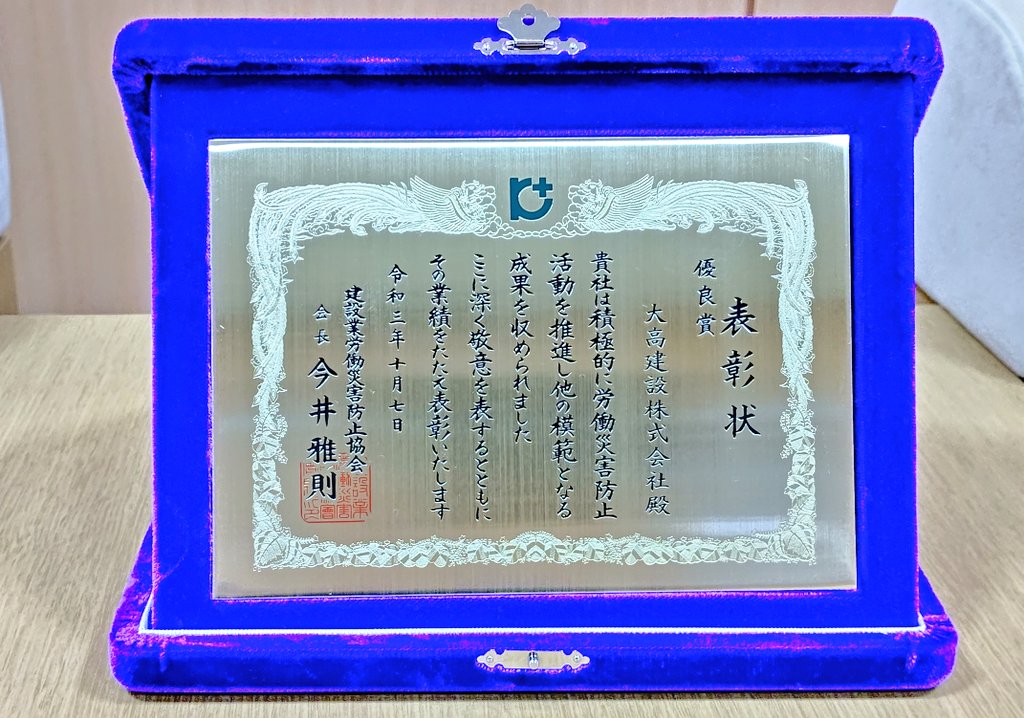 表彰状
優良賞
大高建設株式会社殿
貴社は積極的に労働災害防止
活動を推進し他の模範となる
成果を収められました
ここに深く敬意を表するとともに
その業績をたたえ表彰いたします
令和三年十月七日
建設業労働災害防止協会
会長 今井雅則